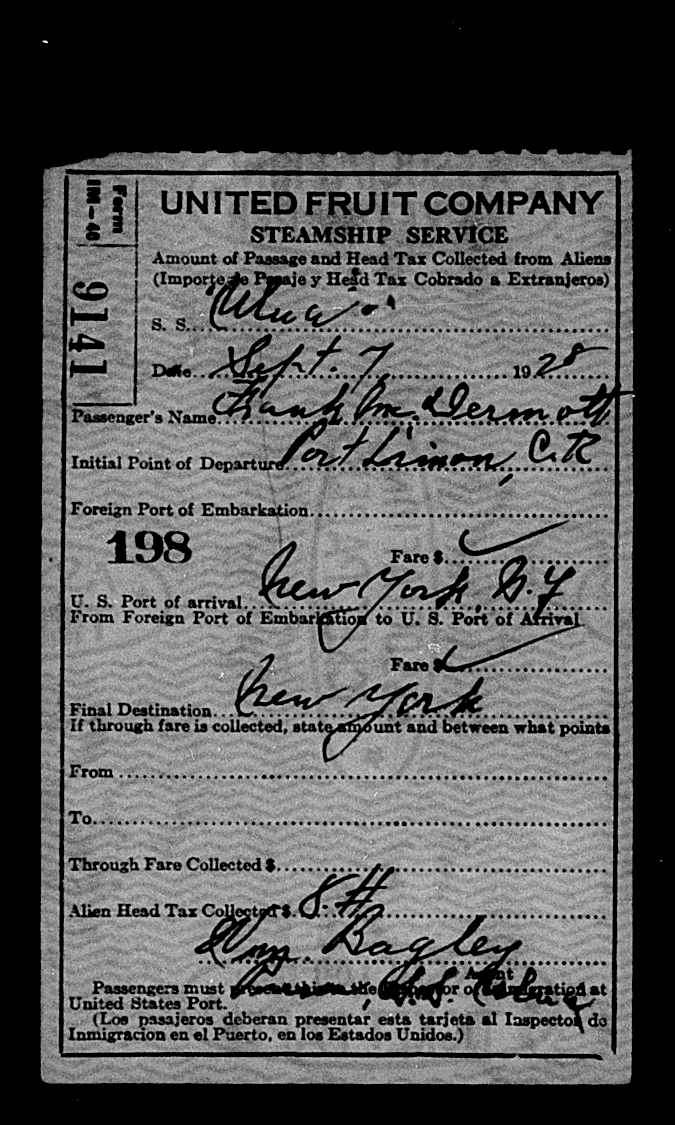 Form
IM-46
9141
UNITED FRUIT COMPANY
STEAMSHIP SERVICE
Amount of Passage and Head Tax Collected from Aliens
(Importe de Pasaje y Head Tax Cobrado a Extranjeros)
S. S. "Ulua"
Date Sept. 7 1928
Passenger's Name Frank McDermott
Initial Point of Departure Port Limon, C.R
Foreign Port of Embarkation
198
Fare $
U. S. Port of arrival New York, N.Y
From Foreign Port of Embarkation to U. S. Port of Arrival
Fare $
Final Destination New York
If through fare is collected, state amount and between what points
From
To
Through Fare Collected $
Alien Head Tax Collected $ 8
Wm Bagley
Agent
Passengers must present this to the Inspector of Immigration at
United States Port.
(Los pasajeros deberan presentar esta tarjeta al Inspector de
Inmigracion en el Puerto, en los Estados Unidos.)